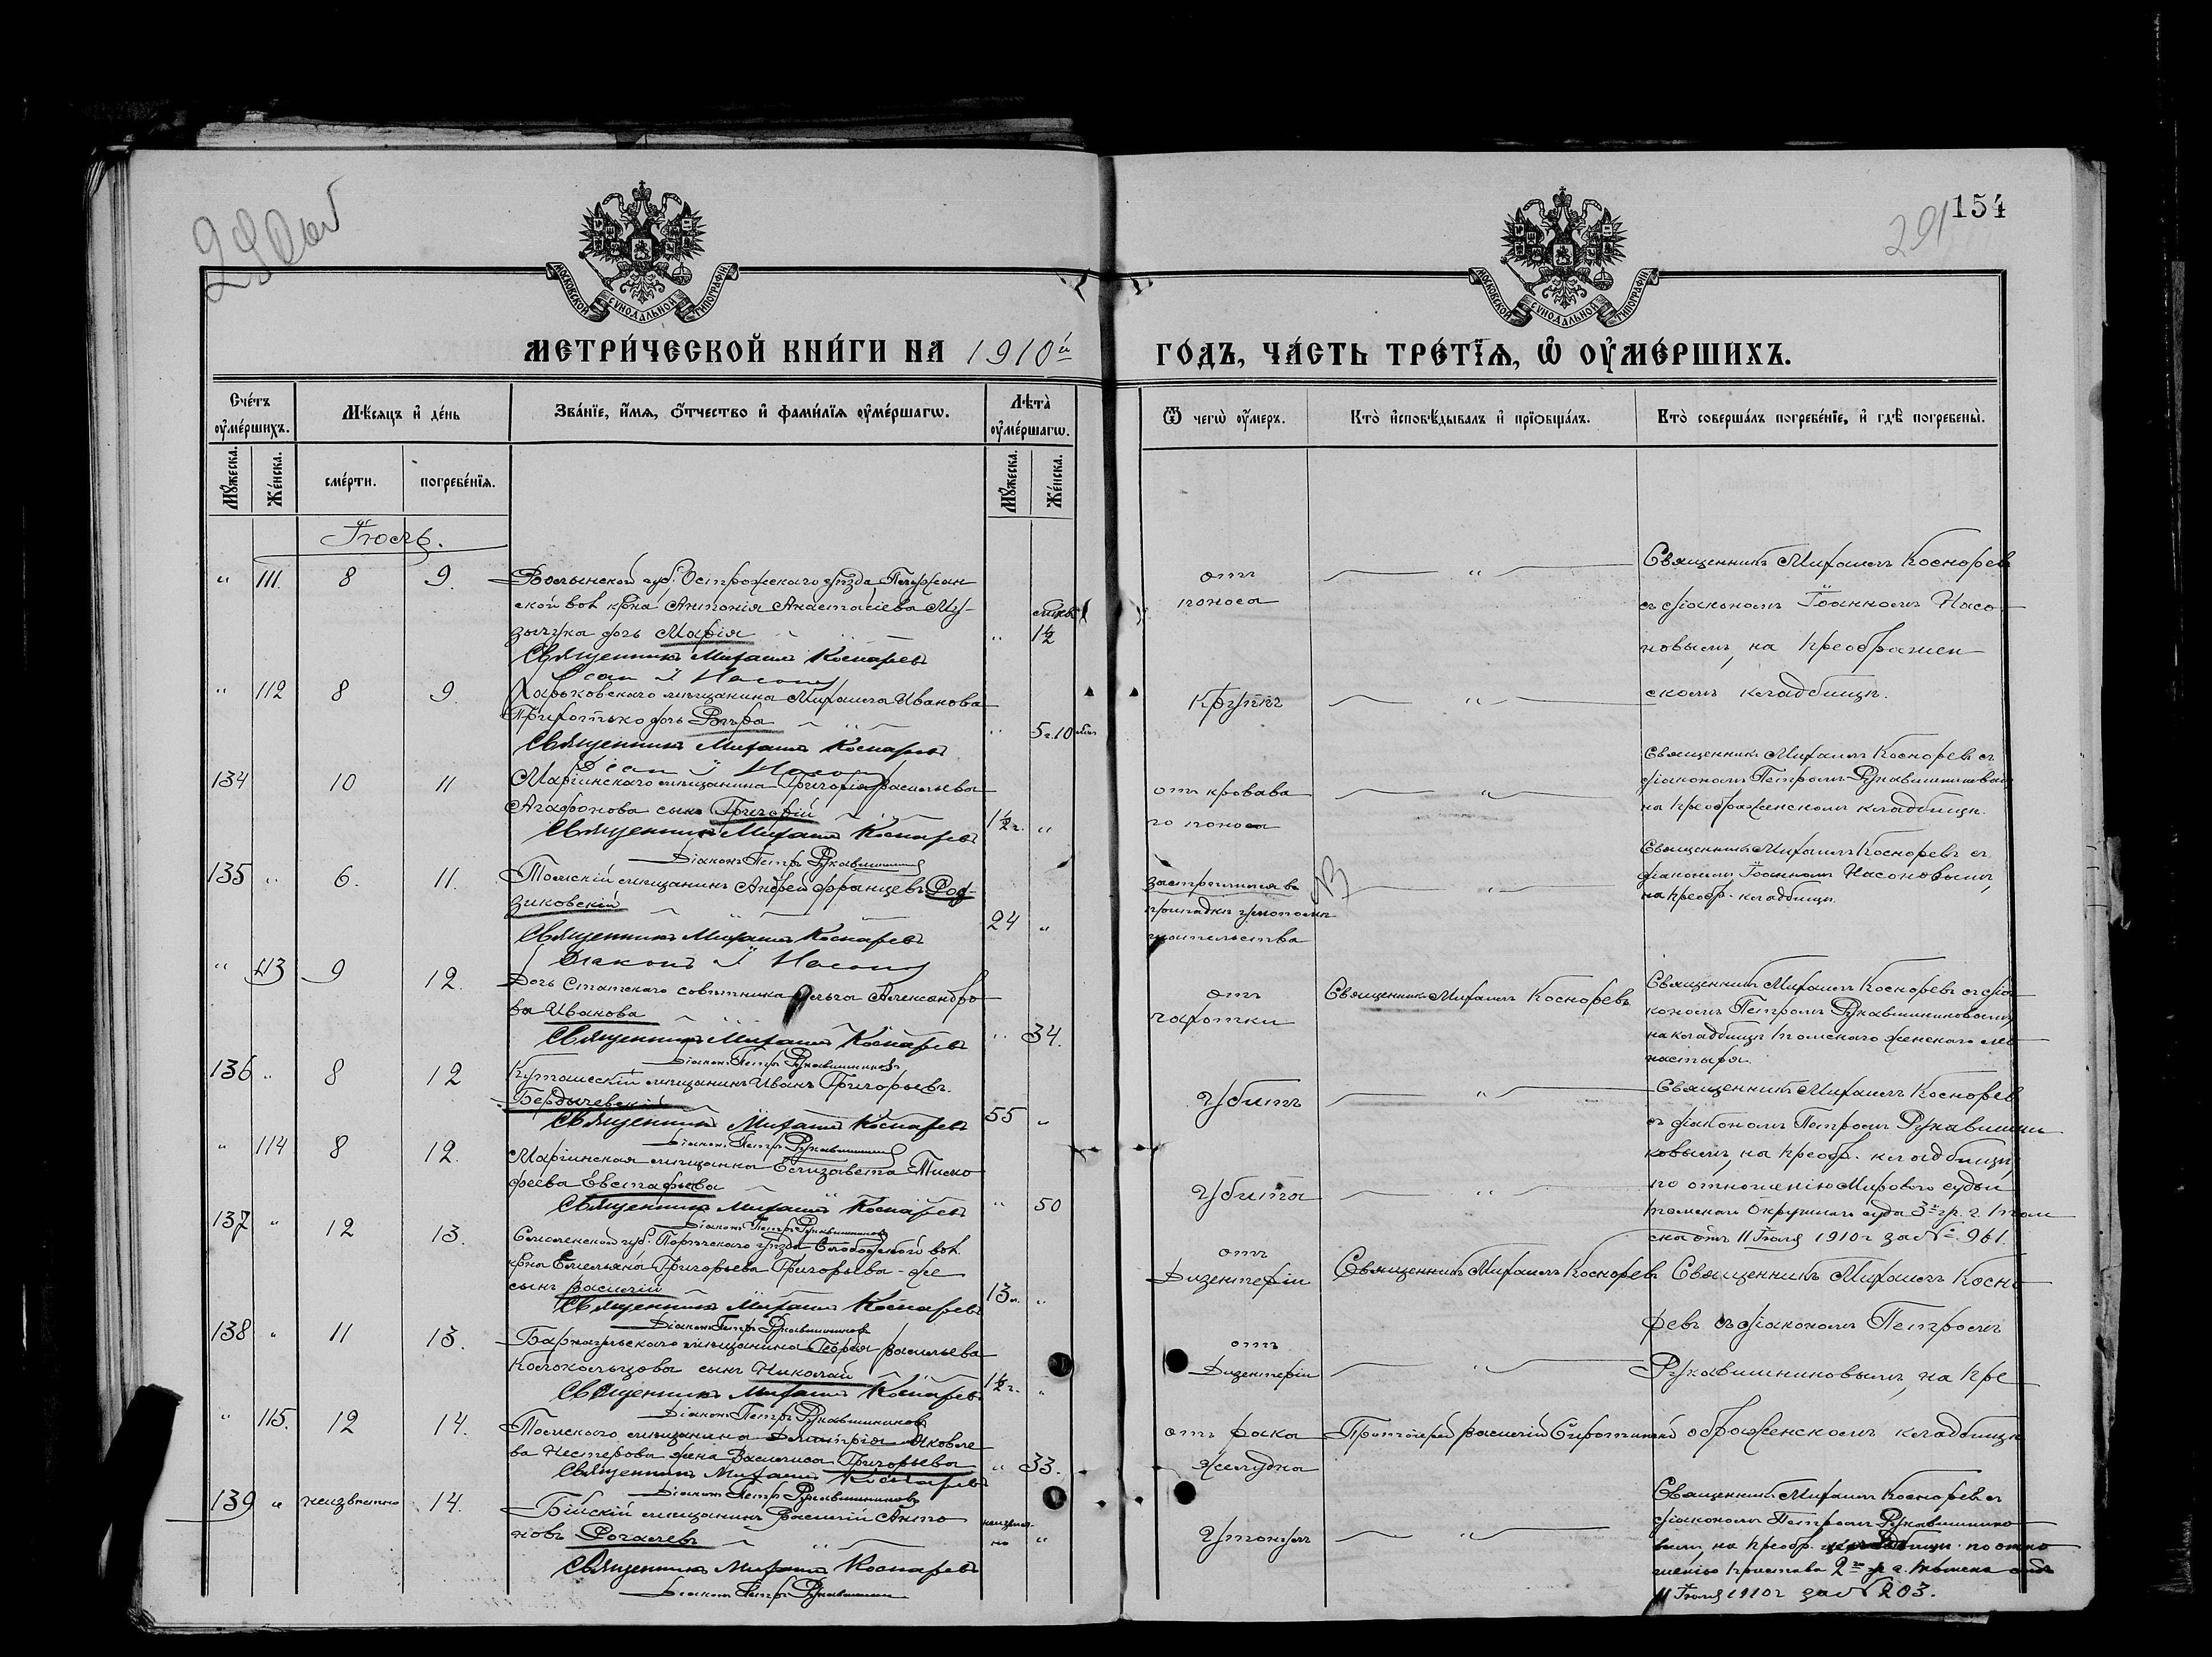 290об
154
291
МОСКОВСКОЙ СΥНОДАЛЬНОЙ ТИПОГРАФІИ
МОСКОВСКОЙ СΥНОДАЛЬНОЙ ТИПОГРАФІИ
МЕТРИ́ЧЕСКОЙ КНИ́ГИ НА 1910й
ГО́ДЪ, ЧА́СТЬ ТРЕ́ТЇѦ, Ѡ҆ ОУ҆МЕ́РШИХЪ.
Сче́тъ оу҆ме́ршихъ.
Мѣ́сяцъ и҆ де́нь
Зва́нїе, и҆́мѧ, ѻ҆́тчество и҆ фами́лїѧ оу҆ме́ршагѡ.
Лѣ́та оу҆ме́ршагѡ.
Ѿ чегѡ̀ оу҆́меръ.
Кто̀ и҆сповѣ́дывалъ и҆ прїѡбща́лъ.
Кто̀ соверша́лъ погребе́нїе, и҆ гдѣ̀ погребены̀.
Му́жеска.
Же́нска.
сме́рти.
погребе́нїѧ.
Му́жеска.
Же́нска.
Іюль.
" 111. 8 9.
Волынской губ. Острожскаго уѣзда
ской вол. кр-на Антонія Анастасіева Му-
зычука дочь Марія
" 1½
Священникъ Михаилъ Коснарев
отъ
поноса
"
Священникъ Михаилъ Коснорев
съ діакономъ Іоанномъ Насо
новымъ, на Преображен
скомъ кладбищѣ.
" 112 8 9.
Харьковскаго мѣщанина Михаила Иванова
Приходько дочь Вѣра
" 5 г. 10 мѣс
Священникъ Михаилъ Коснаревъ
Крупъ
"
134 10 11
Маріинскаго мѣщанина Григорія Васильева
Агафонова сынъ Григорій
1½ г. "
Священникъ Михаилъ Коснаревъ
Діаконъ Петръ Рукавишник
отъ кровава
го поноса
"
Священникъ Михаилъ Коснорев съ
діакономъ Петромъ Рукавишниковым
на Преображенскомъ кладбищѣ.
135 " 6. 11.
Томскій мѣщанинъ Андрей Францевъ Род-
зиковскій
24 "
Священникъ Михаилъ Коснаревъ
Діаконъ І Насонов
застрѣлился въ
припадкѣ умопомѣ
шательства
"
Священникъ Михаилъ Косноревъ съ
діакономъ Іоанномъ Насоновымъ,
на Преобр. кладбищѣ.
" 113 9 12.
Дочь Статскаго совѣтника Ольга Александро
ва Иванова
" 34.
Священникъ Михаилъ Коснаревъ
Діаконъ Петръ Рукавишниковъ
отъ
чахотки
Священникъ Михаилъ Косноревъ
Священникъ Михаилъ Косноревъ съ діа
кономъ Петромъ Рукавишниковымъ,
на кладбищѣ Томскаго женскаго мо
настыря.
136 " 8 12
Кутаисскій мѣщанинъ Иванъ Григорьевъ
Бердычевскій
55 "
Священникъ Михаилъ Коснаревъ
Діаконъ Петръ Рукавишник
Убитъ
"
Священникъ Михаилъ Косноревъ
съ діакономъ Петромъ Рукавишни
ковымъ, на Преобр. кладбищѣ
по отношенію Мирового судьи
Томскаго Окружнаго суда 3го уч. г. Том
ска отъ 11 Іюля 1910 г за № 961.
" 114 8 12.
Маріинская мѣщанка Елизавета Тимо
феева Евстафьева
" 50
Священникъ Михаилъ Коснаревъ
Діаконъ Петръ Рукавишниковъ
Убита
"
137 " 12 13.
Смоленской губ. Порѣчскаго уѣзда Слободской вол.
кр-на Емельяна Григорьева Григорьева-же
сынъ Василій
13 л. "
Священникъ Михаилъ Коснаревъ
Діаконъ Петръ Рукавишниковъ
отъ
Дизентеріи
Священникъ Михаилъ Косноревъ
Священникъ Михаилъ Косно
ревъ съ діакономъ Петромъ
Рукавишниковымъ, на Пре
ображенскомъ кладбищѣ
138 " 11 13.
Барнаульскаго мѣщанина Георгія Васильева
Колокольцова сынъ Николай
1½ г. "
Священникъ Михаилъ Коснаревъ
Діаконъ Петръ Рукавишниковъ
отъ
Дизентеріи
"
" 115. 12 14.
Томскаго мѣщанина Димитрія Яковле
ва Нестерова жена Василиса Григорьева
" 33.
Священникъ Михаилъ Коснаревъ
Діаконъ Петръ Рукавишниковъ
отъ рака
желудка
Протоіерей Василій Сиротинскій
139 " неизвѣстно 14.
Бійскій мѣщанинъ Василій Анто
новъ Рогалевъ
неизвѣст-
но "
Священникъ Михаилъ Коснаревъ
Діаконъ Петръ Рукавишник
Утонулъ
"
Священникъ Михаилъ Косноревъ съ
діакономъ Петромъ Рукавишнико
вымъ, на Преобр. кладбищѣ по отно
шенію Пристава 2го уч. г. Томска отъ
11 Іюля 1910 г за № 203.